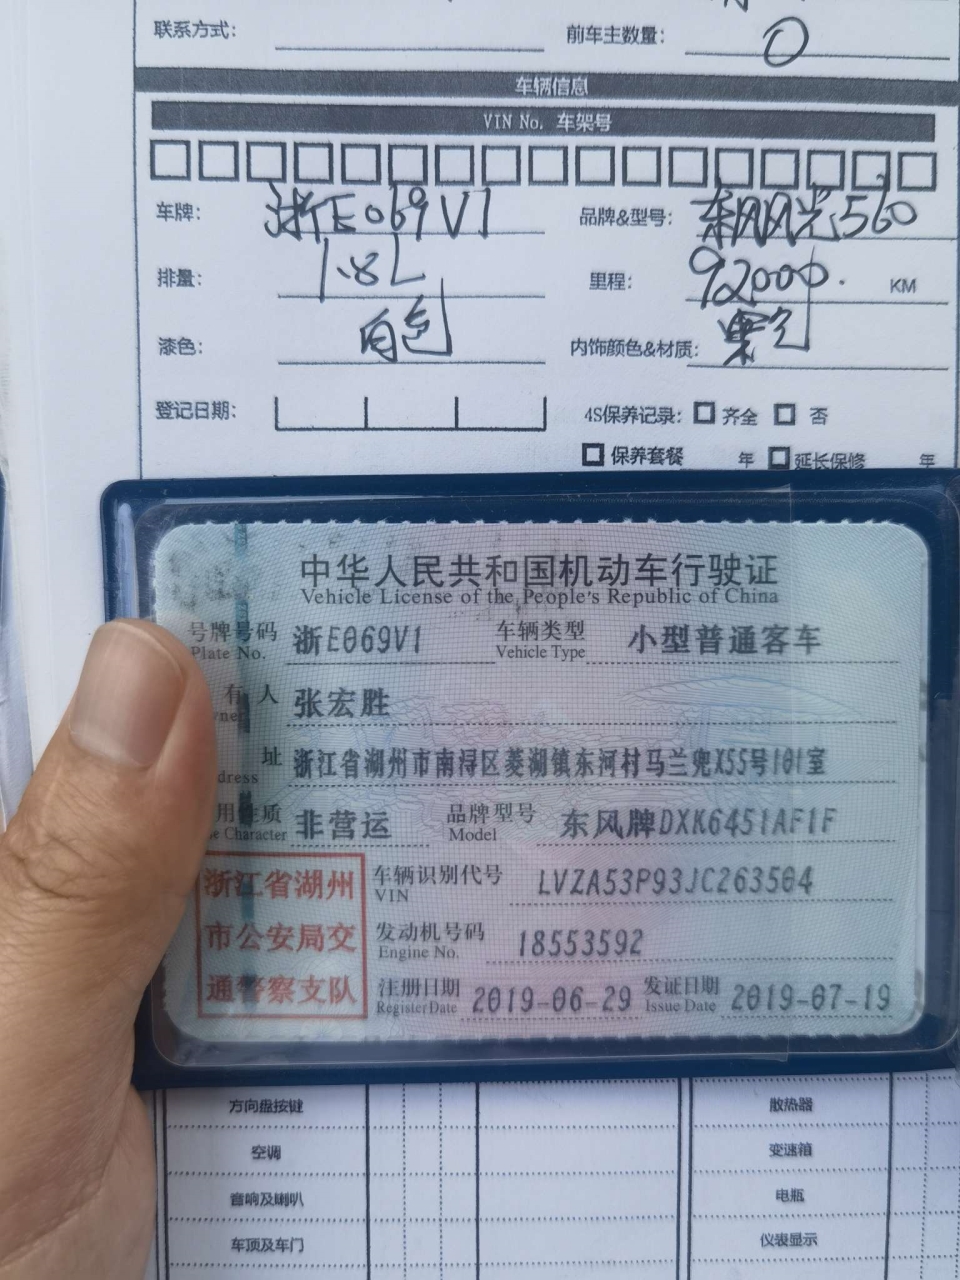 联系方式: 前车主数量: 0
车辆信息
VIN No. 车架号
车牌: 浙E069V1 品牌&型号: 东风风光560
排量: 1.8L 里程: 92000. KM
漆色: 白色 内饰颜色&材质: 黑色
登记日期: 4S保养记录: 齐全 否
保养套餐 年 延长保修 年
中华人民共和国机动车行驶证
Vehicle License of the People's Republic of China
号牌号码 浙E069V1 车辆类型 小型普通客车
Plate No. Vehicle Type
有人 张宏胜
址 浙江省湖州市南浔区菱湖镇东河村马兰兜X55号101室
dress
用性质 非营运 品牌型号 东风牌DXK6451AF1F
Character Model
浙江省湖州 车辆识别代号 LVZA53P93JC263504
VIN
市公安局交 发动机号码 18553592
Engine No.
通警察支队 注册日期 2019-06-29 发证日期 2019-07-19
Register Date Issue Date
方向盘按键 散热器
空调 变速箱
音响及喇叭 电瓶
车顶及车门 仪表显示